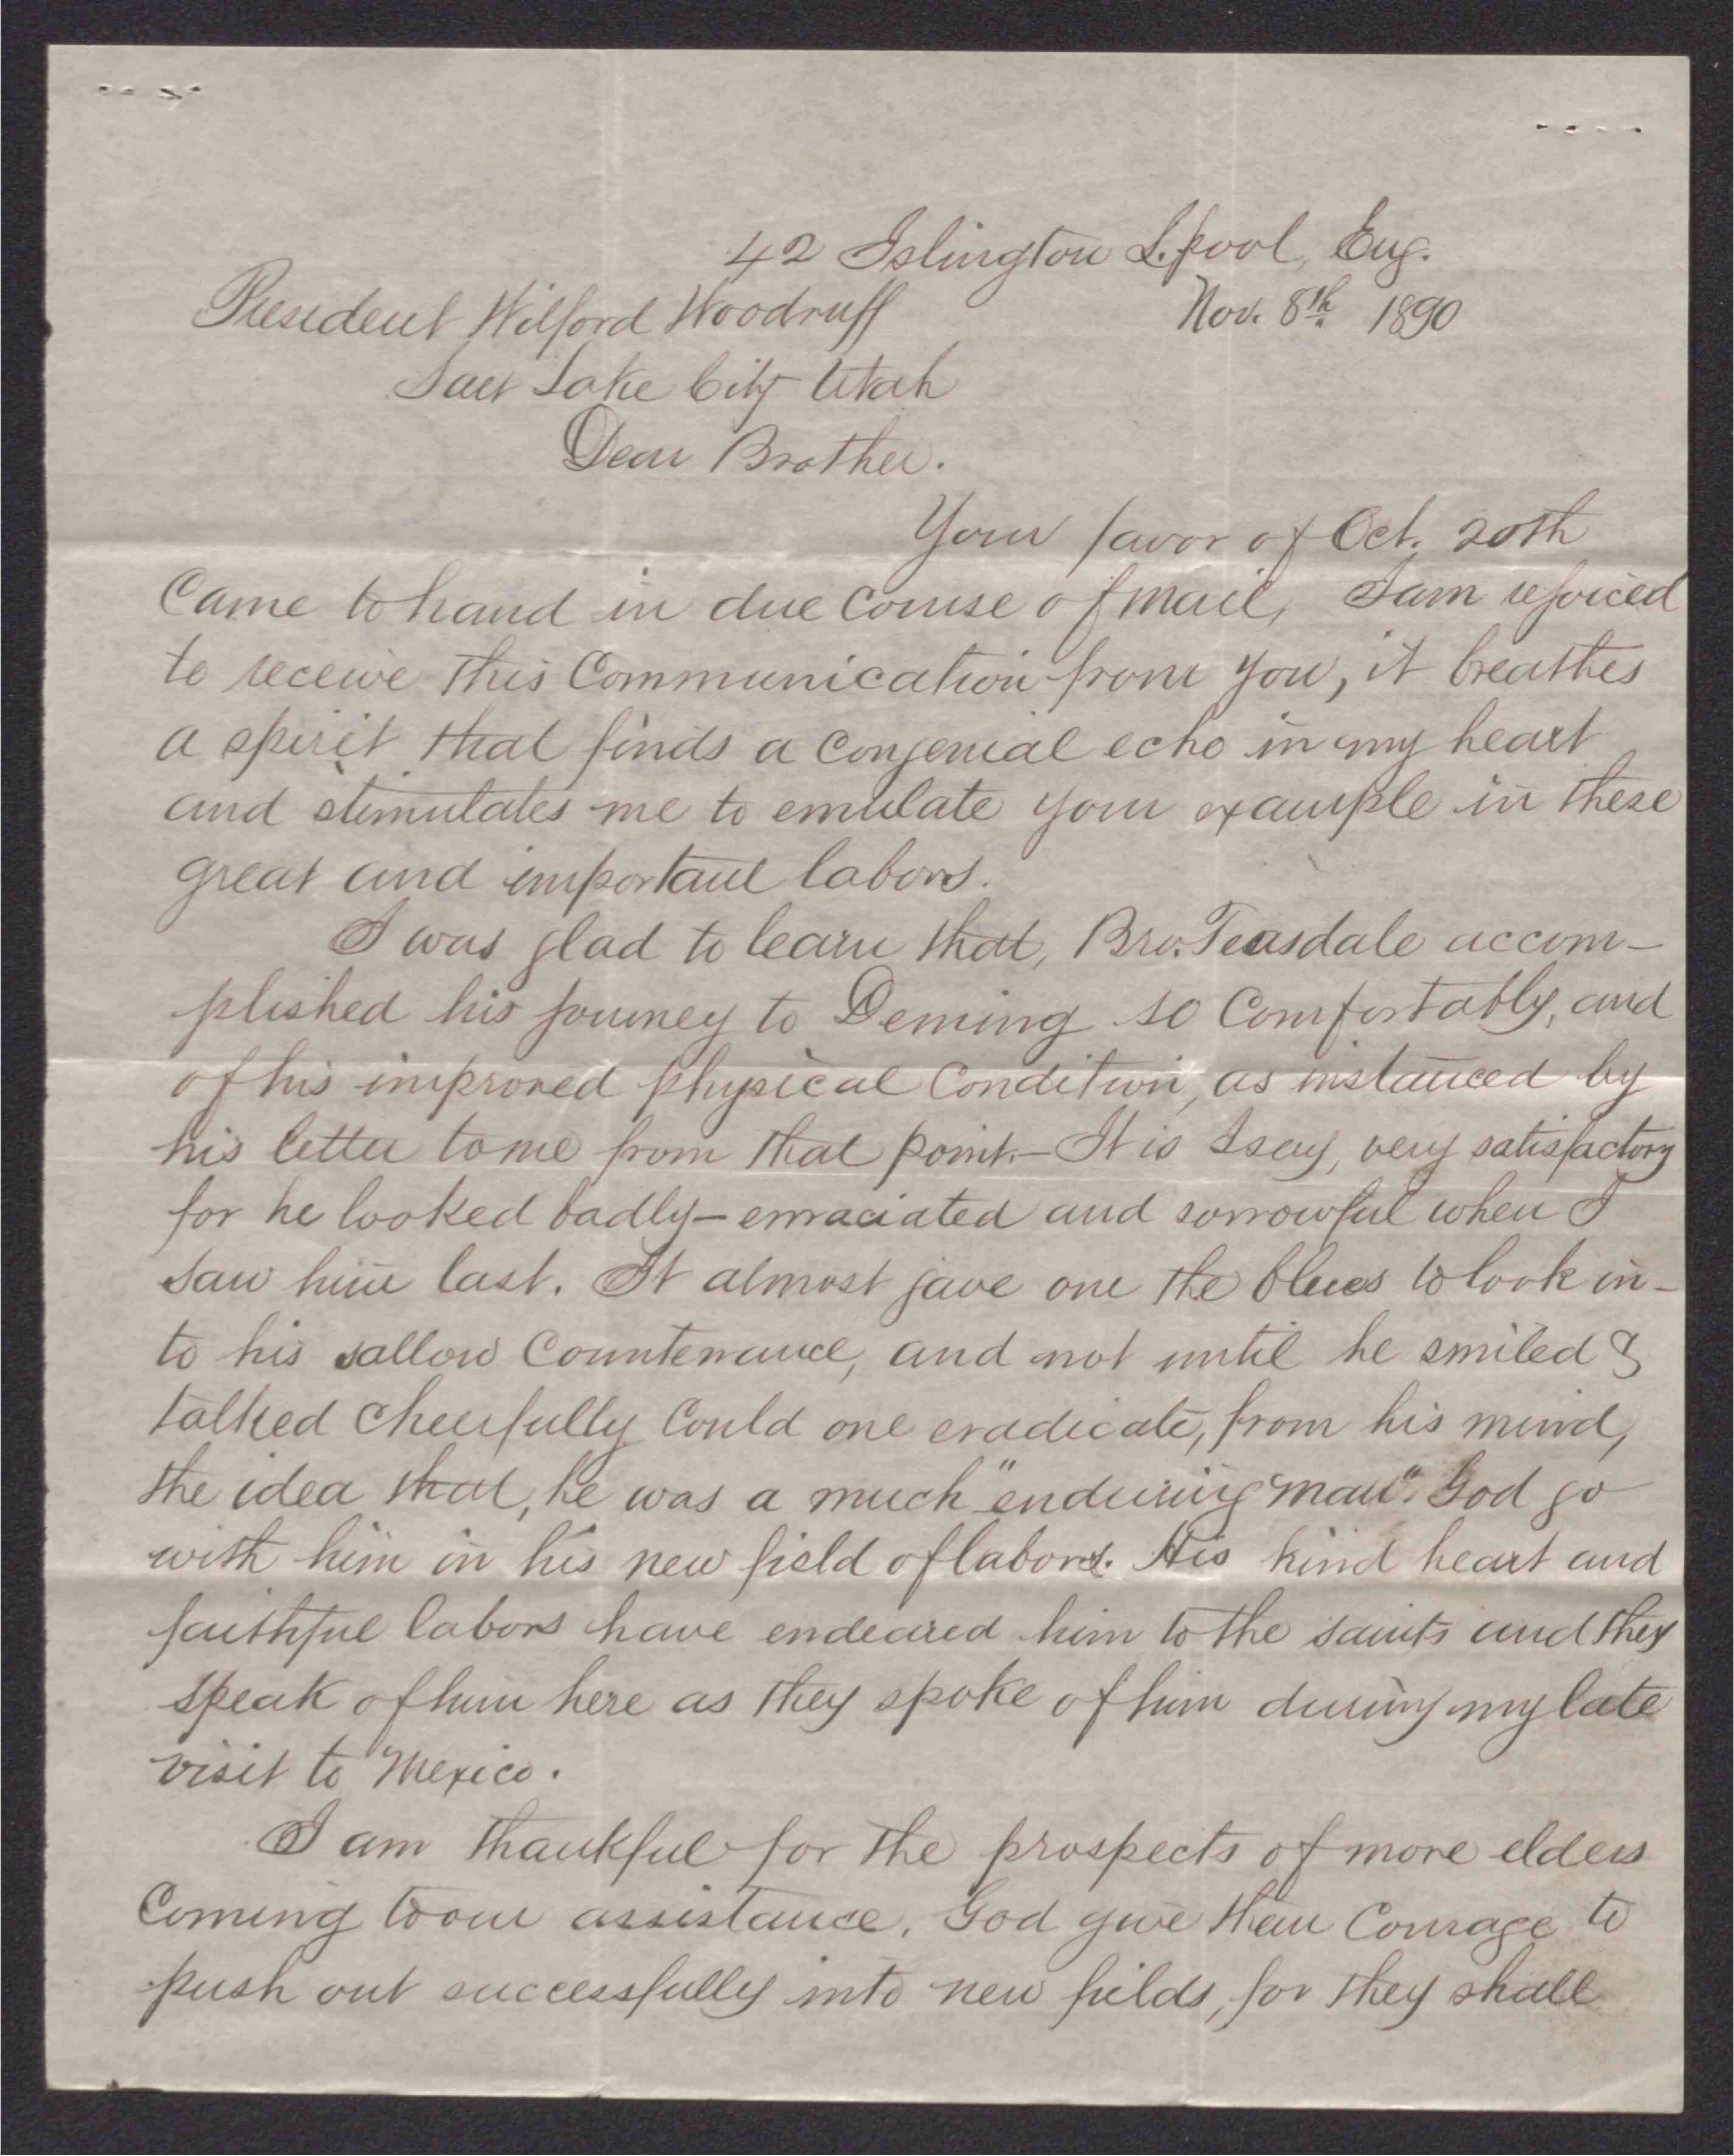 42 Islington L.pool, Eng.
President Wilford Woodruff Nov. 8th 1890
Salt Lake City Utah
Dear Brother.
Your favor of Oct. 20th
Came to hand in due course of mail, I am rejoiced
to receive this Communication from you, it breathes
a spirit that finds a congenial echo in my heart
and stimulates me to emulate your example in these
great and important labors.
I was glad to learn that, Bro. Teasdale accom-
plished his journey to Deming so Comfortably, and
of his improved physical Condition, as instanced by
his letter to me from that point.- It is I say, very satisfactory
for he looked badly- emaciated and sorrowful when I
saw him last. It almost gave one the blues to look in-
to his sallow Countenance, and not until he smiled &
talked cheerfully Could one eradicate, from his mind,
the idea that, he was a much "enduring man". God go
with him in his new field of labors. His kind heart and
faithful labors have endeared him to the saints and they
speak of him here as they spoke of him during my late
visit to Mexico.
I am thankful for the prospects of more elders
Coming to our assistance. God give them Courage to
push out successfully into new fields, for they shall